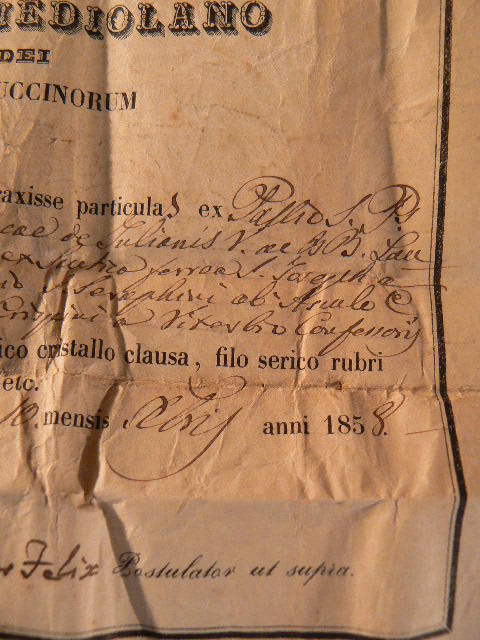 MEDIOLANO
DEI
UCCINORUM
raxisse particulas ex Pallio S. P.
cae de Julianis V. ac BB. Lau
ex
S. Seraphini ab Asculo &
Crispini a Viterbio Confessoris
ico cristallo clausa, filo serico rubri
etc.
10. mensis Xbris anni 1858.
Felix Postulator ut supra.